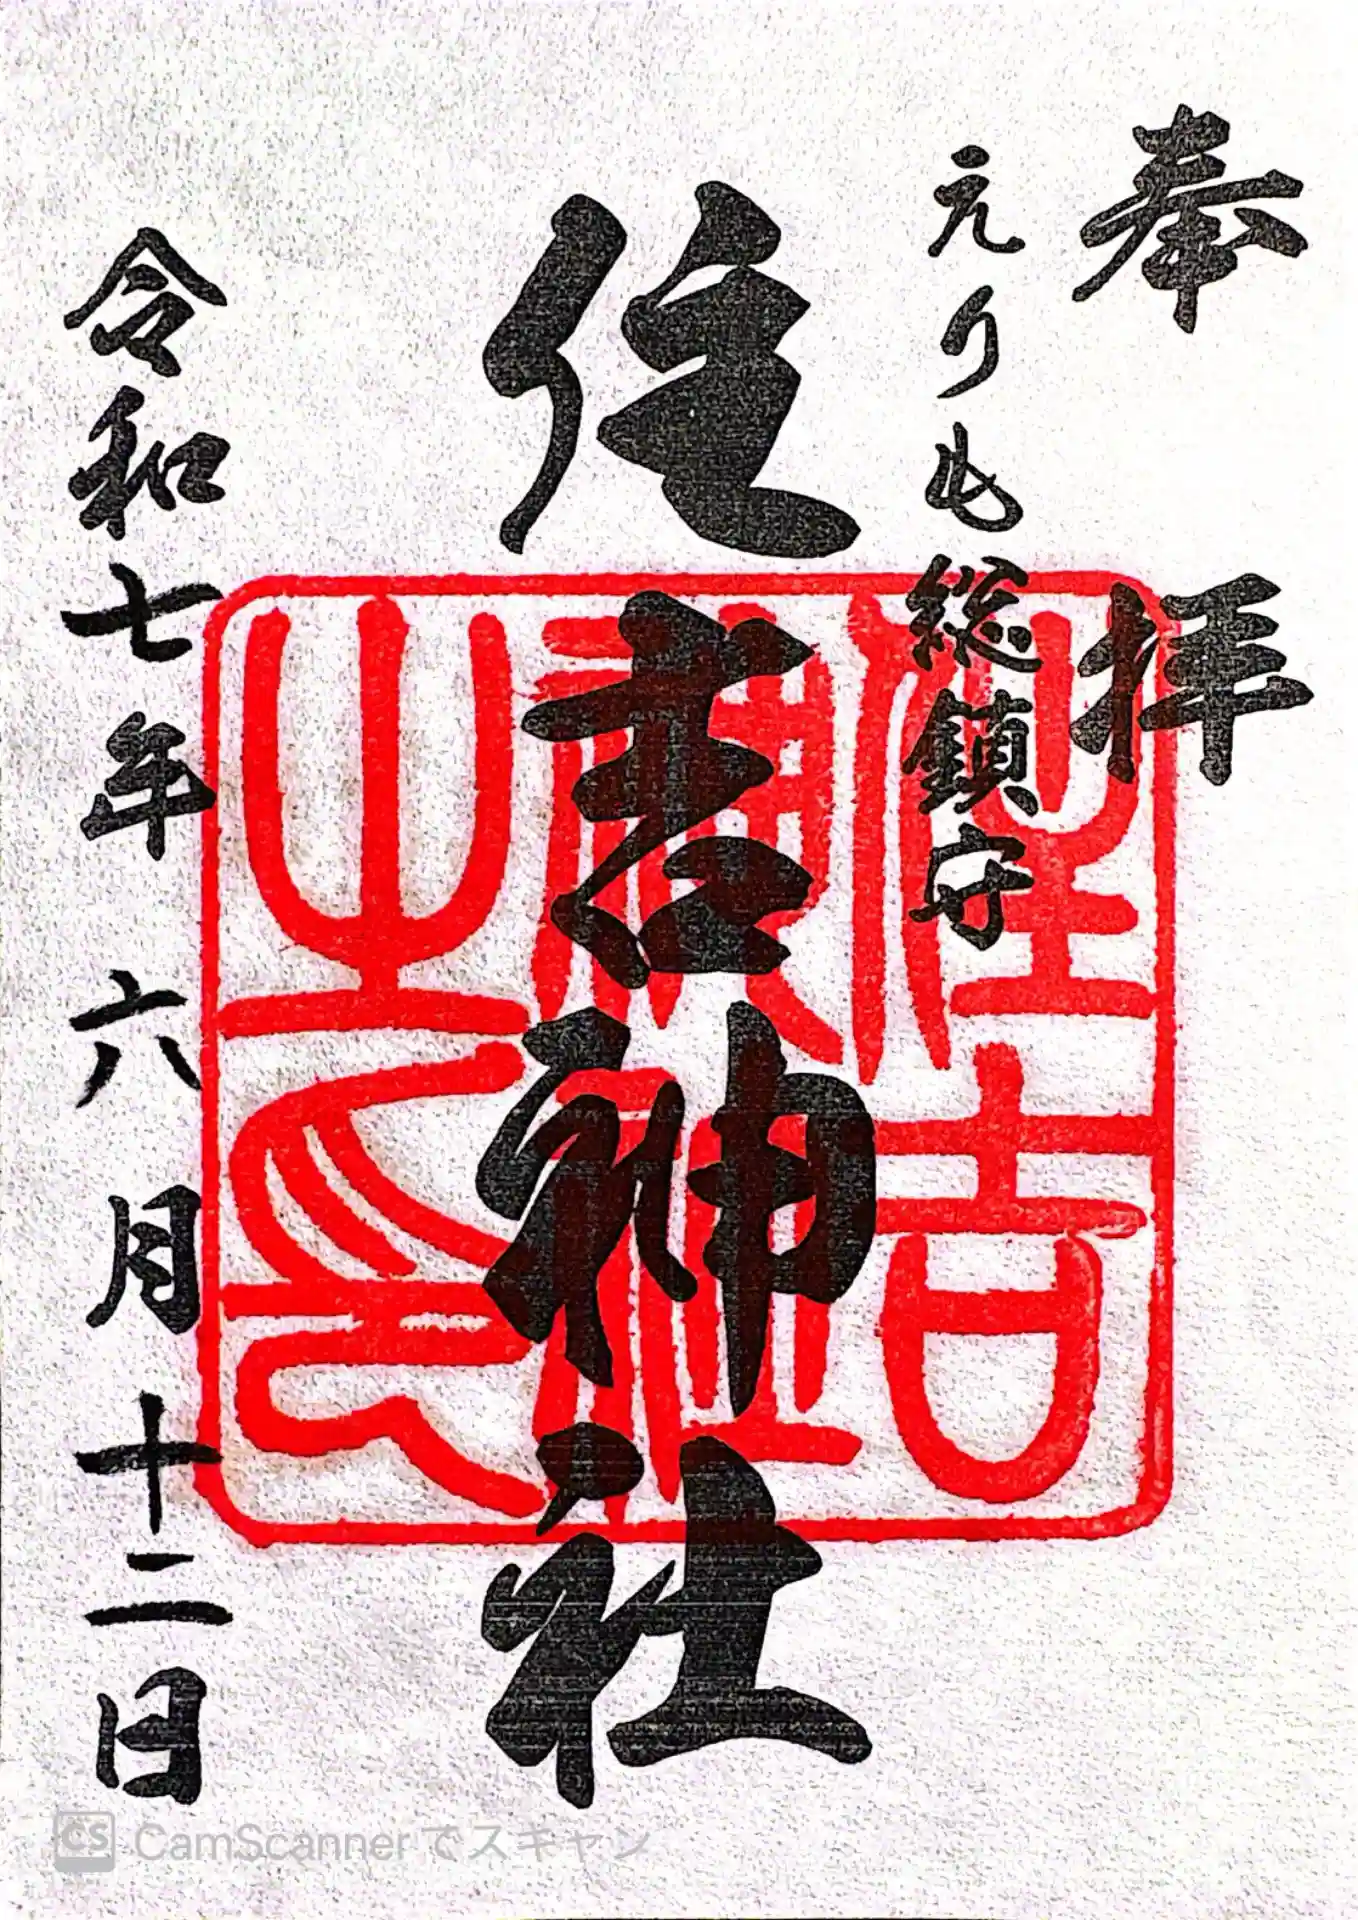 奉拝
えりも総鎮守
住吉神社
住吉
神社
之印
令和七年六月十二日
CS CamScannerでスキャン